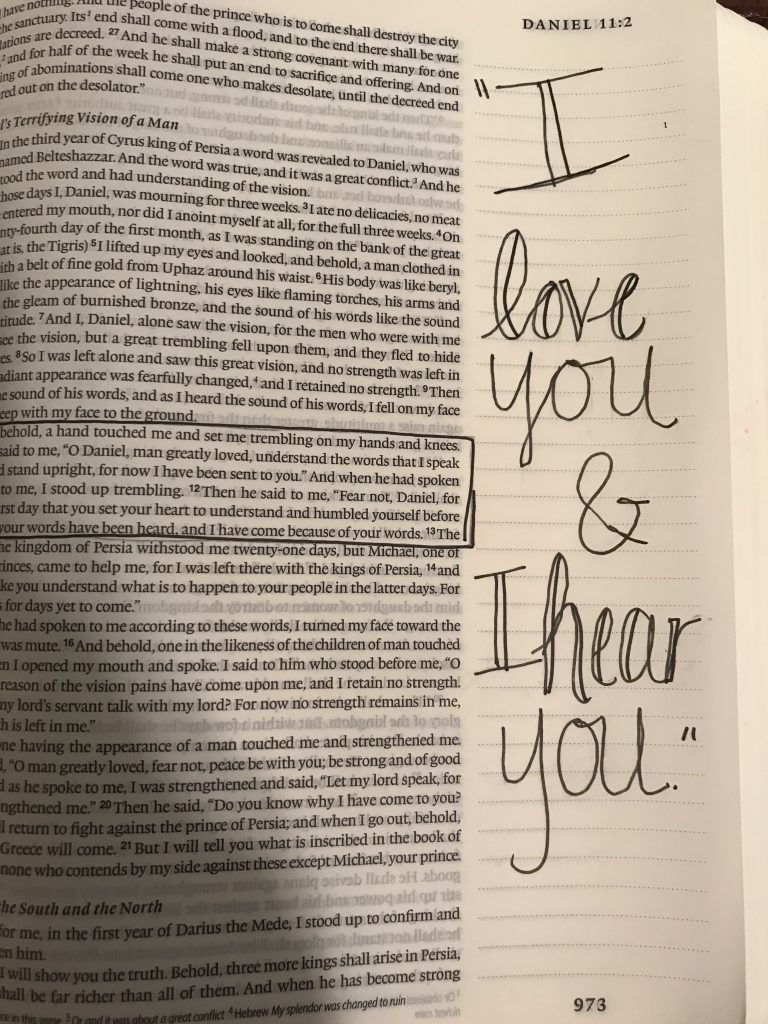 have nothing. And the people of the prince who is to come shall destroy the city
the sanctuary. Its¹ end shall come with a flood, and to the end there shall be war.
lations are decreed. 27 And he shall make a strong covenant with many for one
,² and for half of the week he shall put an end to sacrifice and offering. And on
ing of abominations shall come one who makes desolate, until the decreed end
red out on the desolator.”
l's Terrifying Vision of a Man
In the third year of Cyrus king of Persia a word was revealed to Daniel, who was
named Belteshazzar. And the word was true, and it was a great conflict.³ And he
tood the word and had understanding of the vision.
those days I, Daniel, was mourning for three weeks. 3 I ate no delicacies, no meat
entered my mouth, nor did I anoint myself at all, for the full three weeks. 4 On
nty-fourth day of the first month, as I was standing on the bank of the great
at is, the Tigris) 5 I lifted up my eyes and looked, and behold, a man clothed in
ith a belt of fine gold from Uphaz around his waist. 6 His body was like beryl,
like the appearance of lightning, his eyes like flaming torches, his arms and
the gleam of burnished bronze, and the sound of his words like the sound
titude. 7 And I, Daniel, alone saw the vision, for the men who were with me
see the vision, but a great trembling fell upon them, and they fled to hide
es. 8 So I was left alone and saw this great vision, and no strength was left in
adiant appearance was fearfully changed,⁴ and I retained no strength. 9 Then
e sound of his words, and as I heard the sound of his words, I fell on my face
eep with my face to the ground.
behold, a hand touched me and set me trembling on my hands and knees.
said to me, “O Daniel, man greatly loved, understand the words that I speak
d stand upright, for now I have been sent to you.” And when he had spoken
to me, I stood up trembling. 12 Then he said to me, “Fear not, Daniel, for
rst day that you set your heart to understand and humbled yourself before
your words have been heard, and I have come because of your words. 13 The
he kingdom of Persia withstood me twenty-one days, but Michael, one of
rinces, came to help me, for I was left there with the kings of Persia, 14 and
ke you understand what is to happen to your people in the latter days. For
s for days yet to come.”
he had spoken to me according to these words, I turned my face toward the
was mute. 16 And behold, one in the likeness of the children of man touched
en I opened my mouth and spoke. I said to him who stood before me, “O
reason of the vision pains have come upon me, and I retain no strength.
my lord's servant talk with my lord? For now no strength remains in me,
h is left in me.”
ne having the appearance of a man touched me and strengthened me.
d, “O man greatly loved, fear not, peace be with you; be strong and of good
d as he spoke to me, I was strengthened and said, “Let my lord speak, for
ngthened me.” 20 Then he said, “Do you know why I have come to you?
ll return to fight against the prince of Persia; and when I go out, behold,
Greece will come. 21 But I will tell you what is inscribed in the book of
none who contends by my side against these except Michael, your prince.
the South and the North
for me, in the first year of Darius the Mede, I stood up to confirm and
en him.
I will show you the truth. Behold, three more kings shall arise in Persia,
shall be far richer than all of them. And when he has become strong
ce in this verse ³ Or and it was about a great conflict ⁴ Hebrew My splendor was changed to ruin
DANIEL 11:2
"I
love
you
&
I hear
you."
973